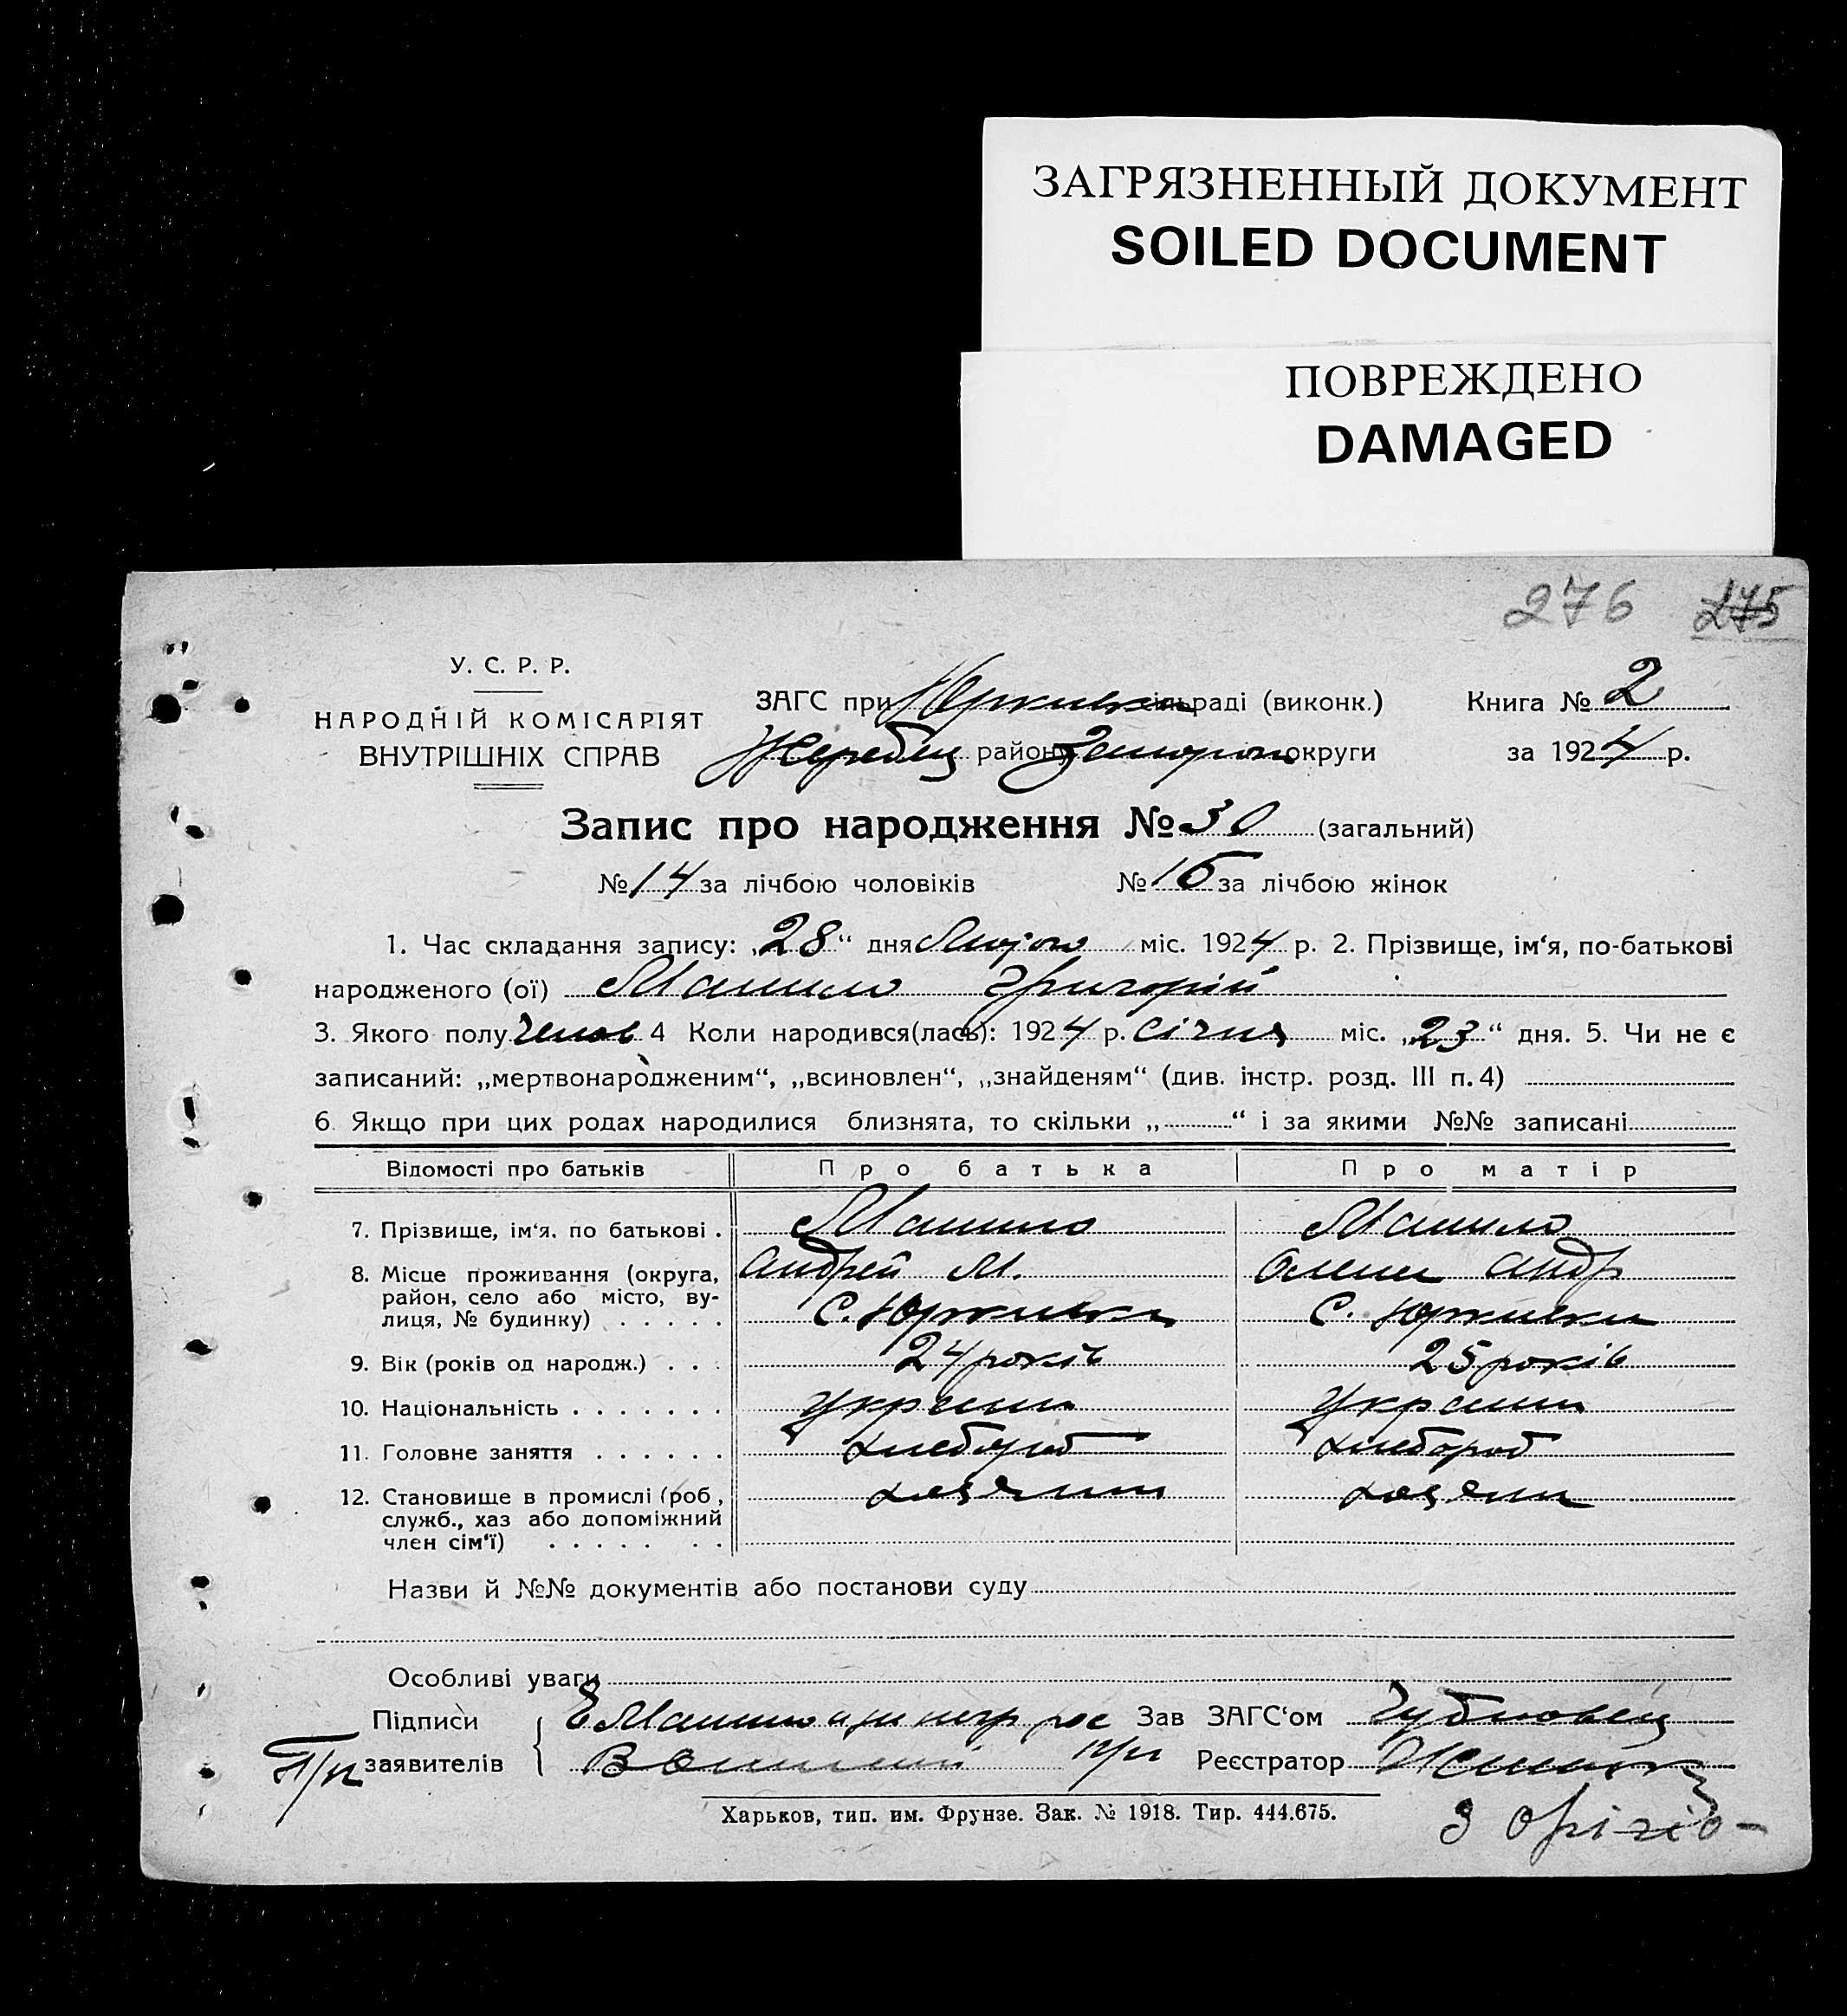 ЗАГРЯЗНЕННЫЙ ДОКУМЕНТ
SOILED DOCUMENT
ПОВРЕЖДЕНО
DAMAGED
276 275
У. С. Р. Р.
НАРОДНІЙ КОМІСАРІЯТ
ВНУТРІШНІХ СПРАВ
ЗАГС при Юрківск сільраді (виконк.) Книга № 2
Жеребец району Запорож округи за 1924 р.
Запис про народження № 30 (загальний)
№ 14 за лічбою чоловіків № 16 за лічбою жінок
1. Час складання запису: „28“ дня Лютого міс. 1924 р. 2. Прізвище, ім'я, по-батькові
народженого (ої) Машило Григорій
3. Якого полу Чолов 4 Коли народився(лась): 1924 р. січня міс. „23“ дня. 5. Чи не є
записаний: „мертвонародженим“, „всиновлен“, „знайденям“ (див. інстр. розд. III п. 4)
6. Якщо при цих родах народилися близнята, то скільки „ “ і за якими №№ записані
Відомості про батьків Про батька Про матір
7. Прізвище, ім'я, по батькові . Машило Машило
Андрей М. Олена Андр
8. Місце проживання (округа,
район, село або місто, ву-
лиця, № будинку) . . . . . С. Юркивка С. Юркивка
9. Вік (років од народж.) . . . 24 років 25 років
10. Національність . . . . . . . Украин Украин
11. Головне заняття . . . . . . хлебороб хлебороб
12. Становище в промислі (роб,
служб., хаз або допоміжний
член сім'ї) . . . . . . . хазяин хазяин
Назви й №№ документів або постанови суду
Особливі уваги
Підписи Машило Зав ЗАГС'ом
П/п заявителів Реєстратор
Харьков, тип. им. Фрунзе. Зак. № 1918. Тир. 444.675.
З